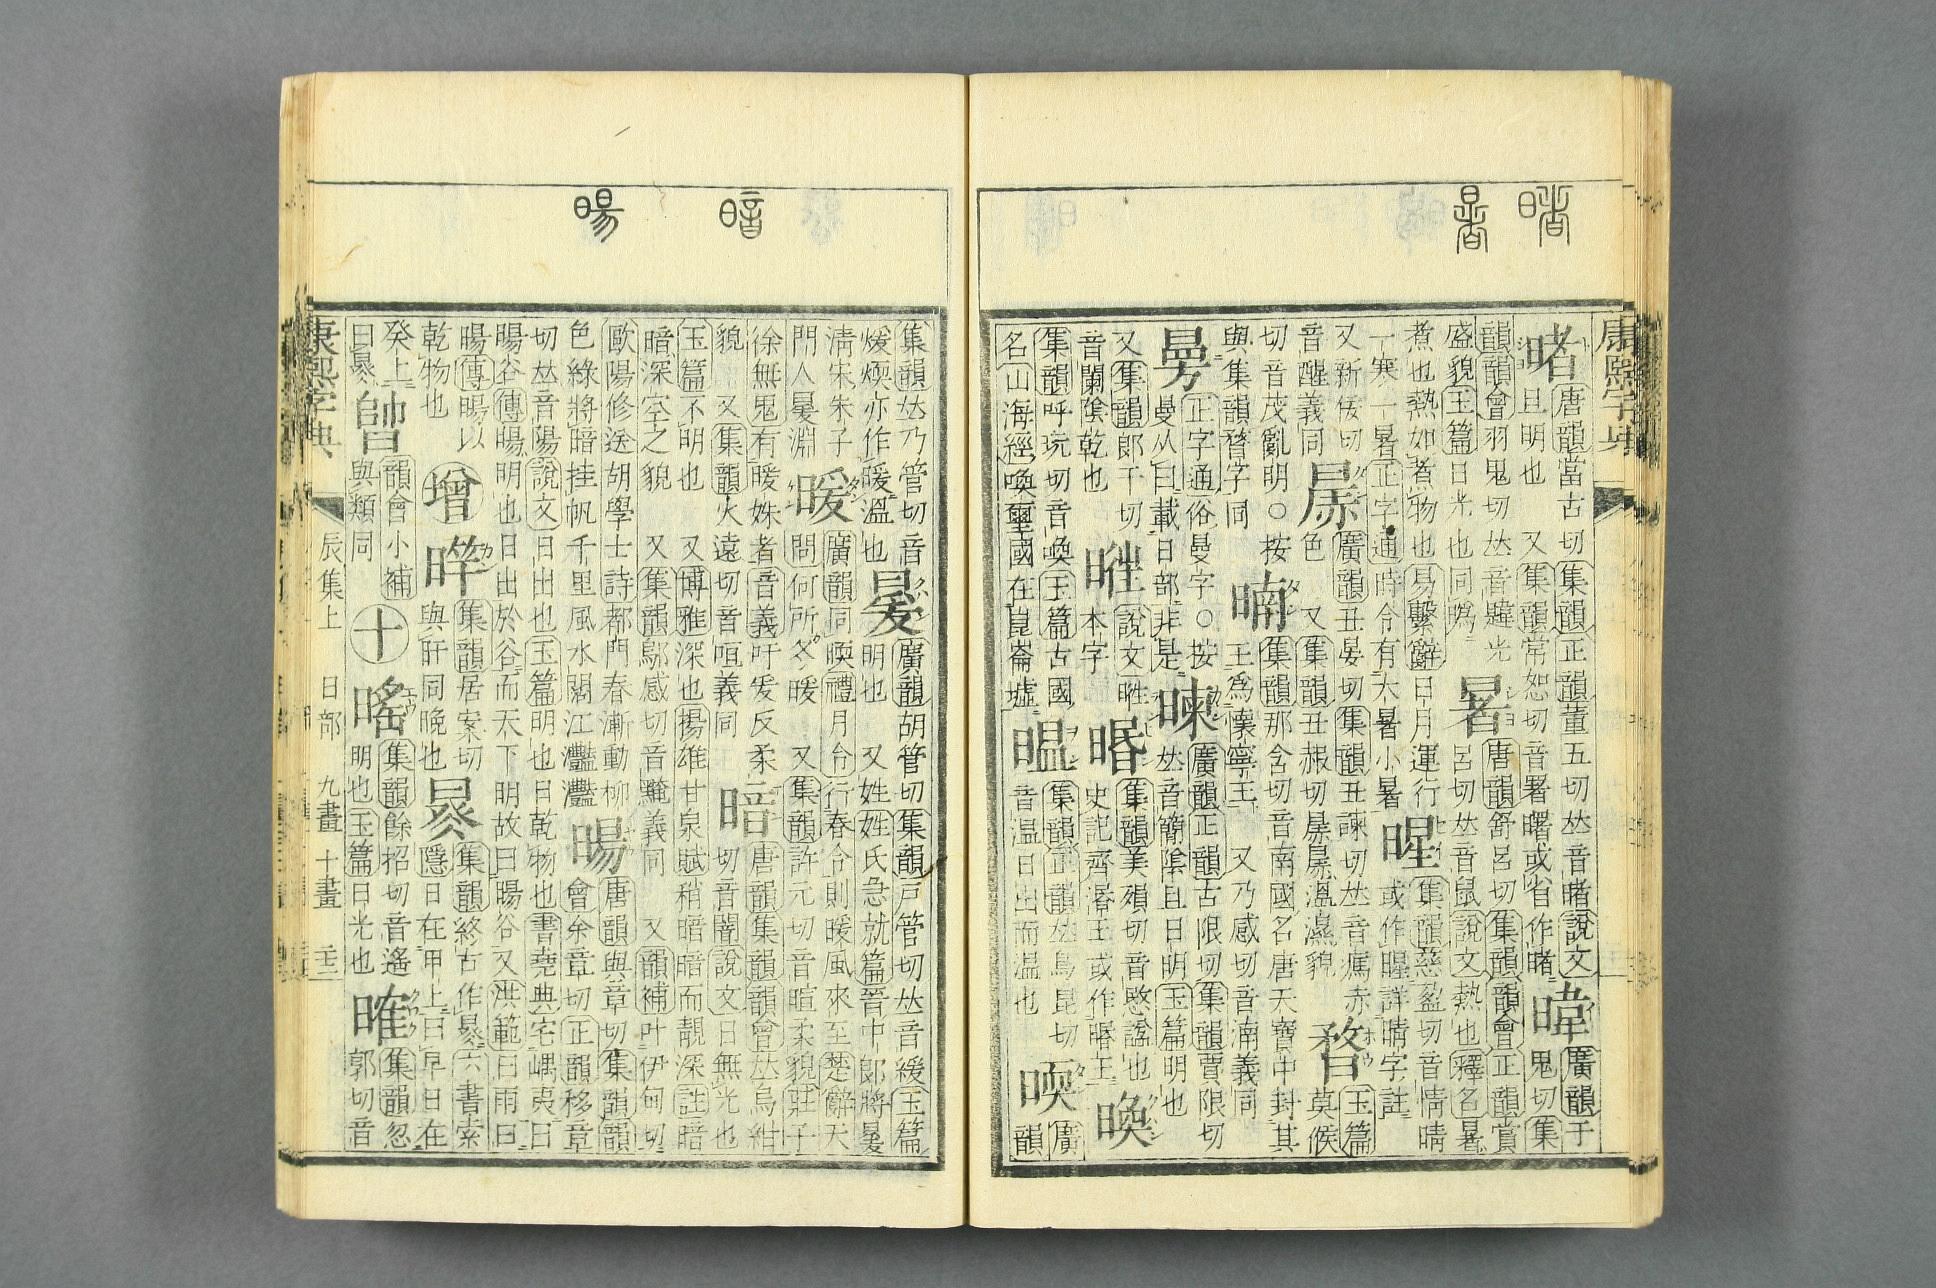 睹
暑
康熙字典
睹
唐韻當古切集韻正韻董五切𠀤音睹說文
旦明也 又集韻常恕切音署曙或省作睹
暐
廣韻于
鬼切集
韻韻會羽鬼切𠀤音韙光
盛貌玉篇日光也同
暑
唐韻舒呂切集韻韻會正韻賞
呂切𠀤音鼠說文熱也釋名暑
煮也熱如煮物也易繫辭日月運行
一寒一暑正字通時令有大暑小暑
暒
集韻慈盈切音情晴
或作暒詳晴字註
又新佞切
音醒義同
㬑
廣韻丑晏切集韻丑諫切𠀤音
色 又集韻丑赧切 溫濕貌
暓
玉篇
莫候
切音茂亂明○按
與集韻瞀字同
暔
集韻那含切音南國名唐天寶中封其
王爲懷寧王 又乃感切音湳義同
㬅
正字通俗曼字○按
曼从曰載日部非是
暕
廣韻正韻古限切集韻賈限切
𠀤音簡陰旦日明玉篇明也
又集韻郎干切
音闌陰乾也
說文
本字
暋
集韻美殞切音愍謚也
史記齊湣王或作暋王
㬇
集韻呼玩切音喚玉篇古國
名山海經喚璽國在崑崙墟
昷
集韻正韻𠀤烏昆切
音温日出而温也
㬉
廣
韻
暗
暘
集韻𠀤乃管切音
煖煗亦作暖溫也
㬊
廣韻胡管切集韻戸管切𠀤音緩玉篇
明也 又姓姓氏急就篇晉中郞將㬊
清宋朱子
門人㬊淵
暖
廣韻同㬉禮月令行春令則暖風來至楚辭天
問何所冬暖 又集韻許元切音暄柔貌莊子
徐無鬼有暖姝者音義吁爰反柔
貌 又集韻火遠切音咺義同
暗
唐韻集韻韻會𠀤烏紺
切音闇說文日無光也
玉篇不明也 又博雅深也揚雄甘泉賦稍暗暗而靚深註暗
暗深空之貌 又集韻鄔感切音黤義同 又韻補叶伊甸切
歐陽修送胡學士詩都門春漸動柳
色綠將暗挂帆千里風水闊江灩灩
暘
唐韻與章切集韻韻
會余章切正韻移章
切𠀤音陽說文日出也玉篇明也日乾物也書堯典宅嵎夷曰
暘谷傳暘明也日出於谷而天下明故曰暘谷又洪範曰雨曰
暘傳暘以
乾物也
增
㫔
集韻居案切
與旰同晚也
集韻終古作㬥六書索
隱日在甲上曰早日在
癸上
曰
韻會小補
與類同
十
暚
集韻餘招切音遙
明也玉篇日光也
㬦
集韻忽
郭切音
康熙字典
辰集上
日部
九畫
十畫